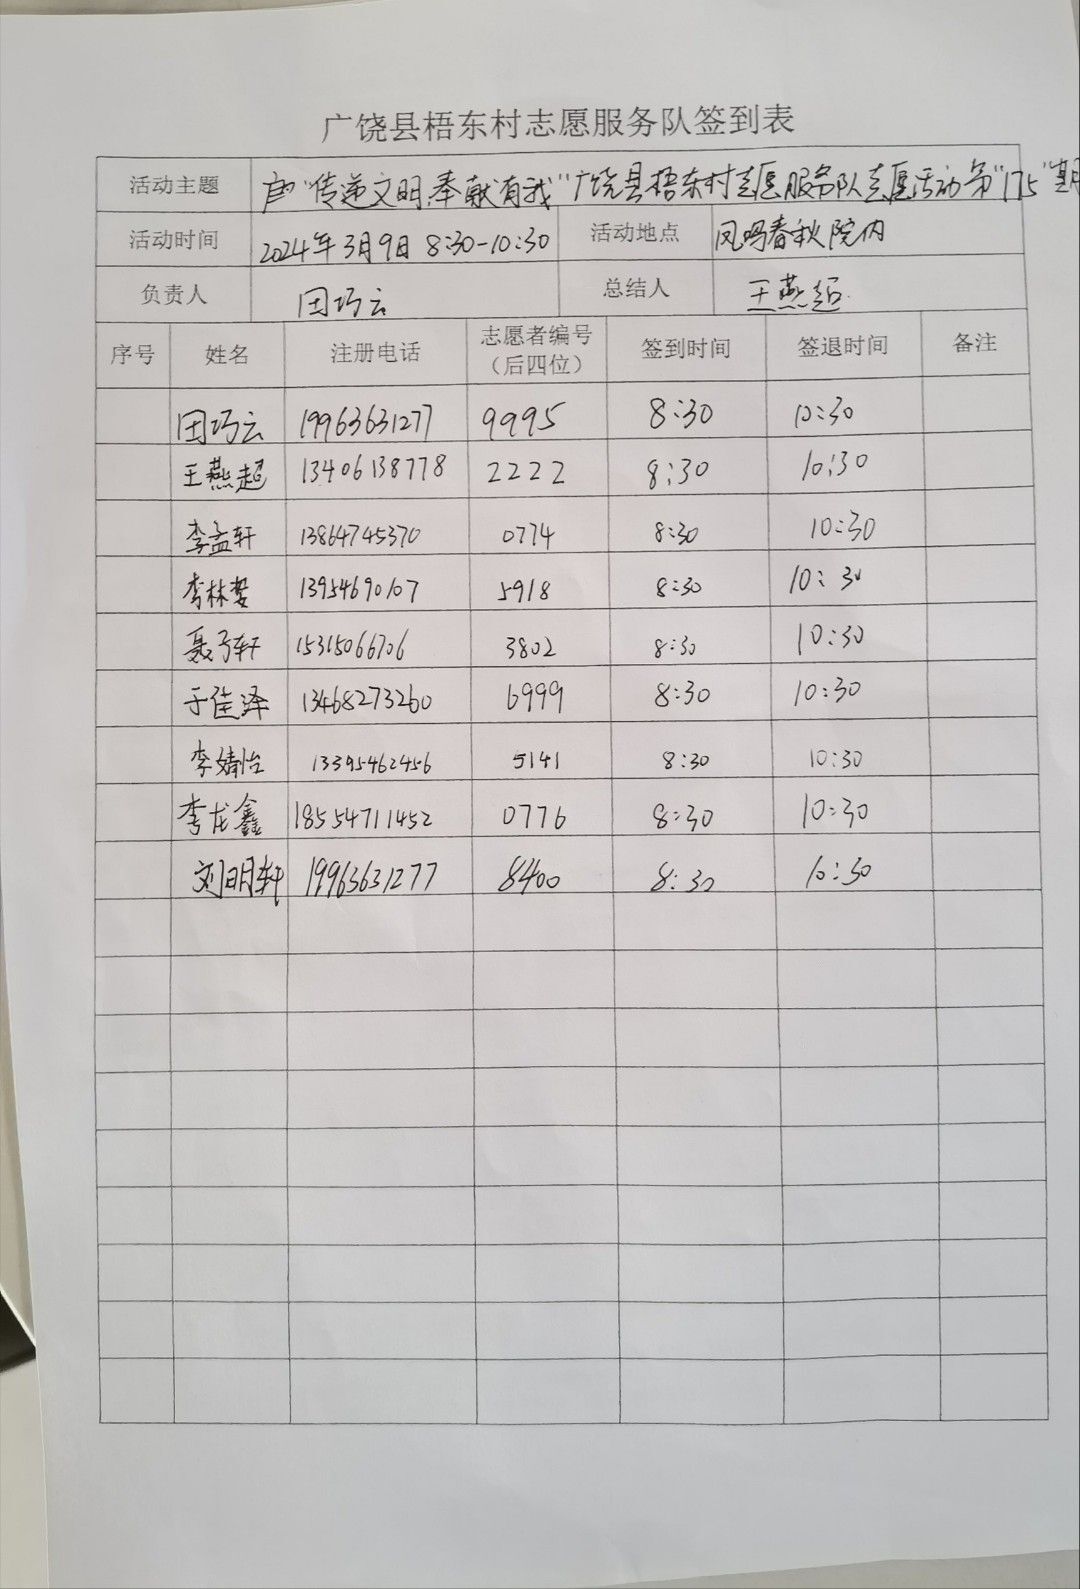 广饶县梧东村志愿服务队签到表
活动主题 "传递文明,奉献有我"广饶县梧东村志愿服务队志愿活动第"175"期
活动时间 2024年3月9日 8:30-10:30 活动地点 凤鸣春秋院内
负责人 田巧云 总结人 王燕超
序号 姓名 注册电话 志愿者编号（后四位） 签到时间 签退时间 备注
田巧云 19963631277 9995 8:30 10:30
王燕超 13406138778 2222 8:30 10:30
李孟轩 13864745370 0774 8:30 10:30
李林哲 13954690107 5918 8:30 10:30
聂子轩 15315066706 3802 8:30 10:30
于佳泽 13468273260 6999 8:30 10:30
李婧怡 13395462456 5141 8:30 10:30
李龙鑫 18554711452 0776 8:30 10:30
刘明轩 19963631277 8400 8:30 10:30